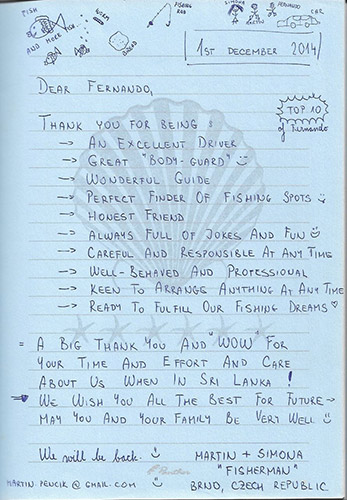 FISH
AND MORE FISH
WORM
BREAD
FISHING
ROD
SIMONA
MARTIN
FERNANDO
CAR
1ST DECEMBER 2014
DEAR FERNANDO,
TOP 10
of Fernando
THANK YOU FOR BEING :
→ AN EXCELLENT DRIVER
→ GREAT "BODY-GUARD" ☺
→ WONDERFUL GUIDE
→ PERFECT FINDER OF FISHING SPOTS ☺
→ HONEST FRIEND
→ ALWAYS FULL OF JOKES AND FUN ☺
→ CAREFUL AND RESPONSIBLE AT ANY TIME
→ WELL-BEHAVED AND PROFESSIONAL
→ KEEN TO ARRANGE ANYTHING AT ANY TIME
→ READY TO FULFILL OUR FISHING DREAMS ♡
= A BIG THANK YOU AND "WOW" FOR
YOUR TIME AND EFFORT AND CARE
ABOUT US WHEN IN SRI LANKA !
→ WE WISH YOU ALL THE BEST FOR FUTURE →
MAY YOU AND YOUR FAMILY BE VERY WELL ☺
We will be back. ☺
MARTIN + SIMONA
"FISHERMAN"
MARTIN.PENCIK@GMAIL.COM ☺
BRNO, CZECH REPUBLIC